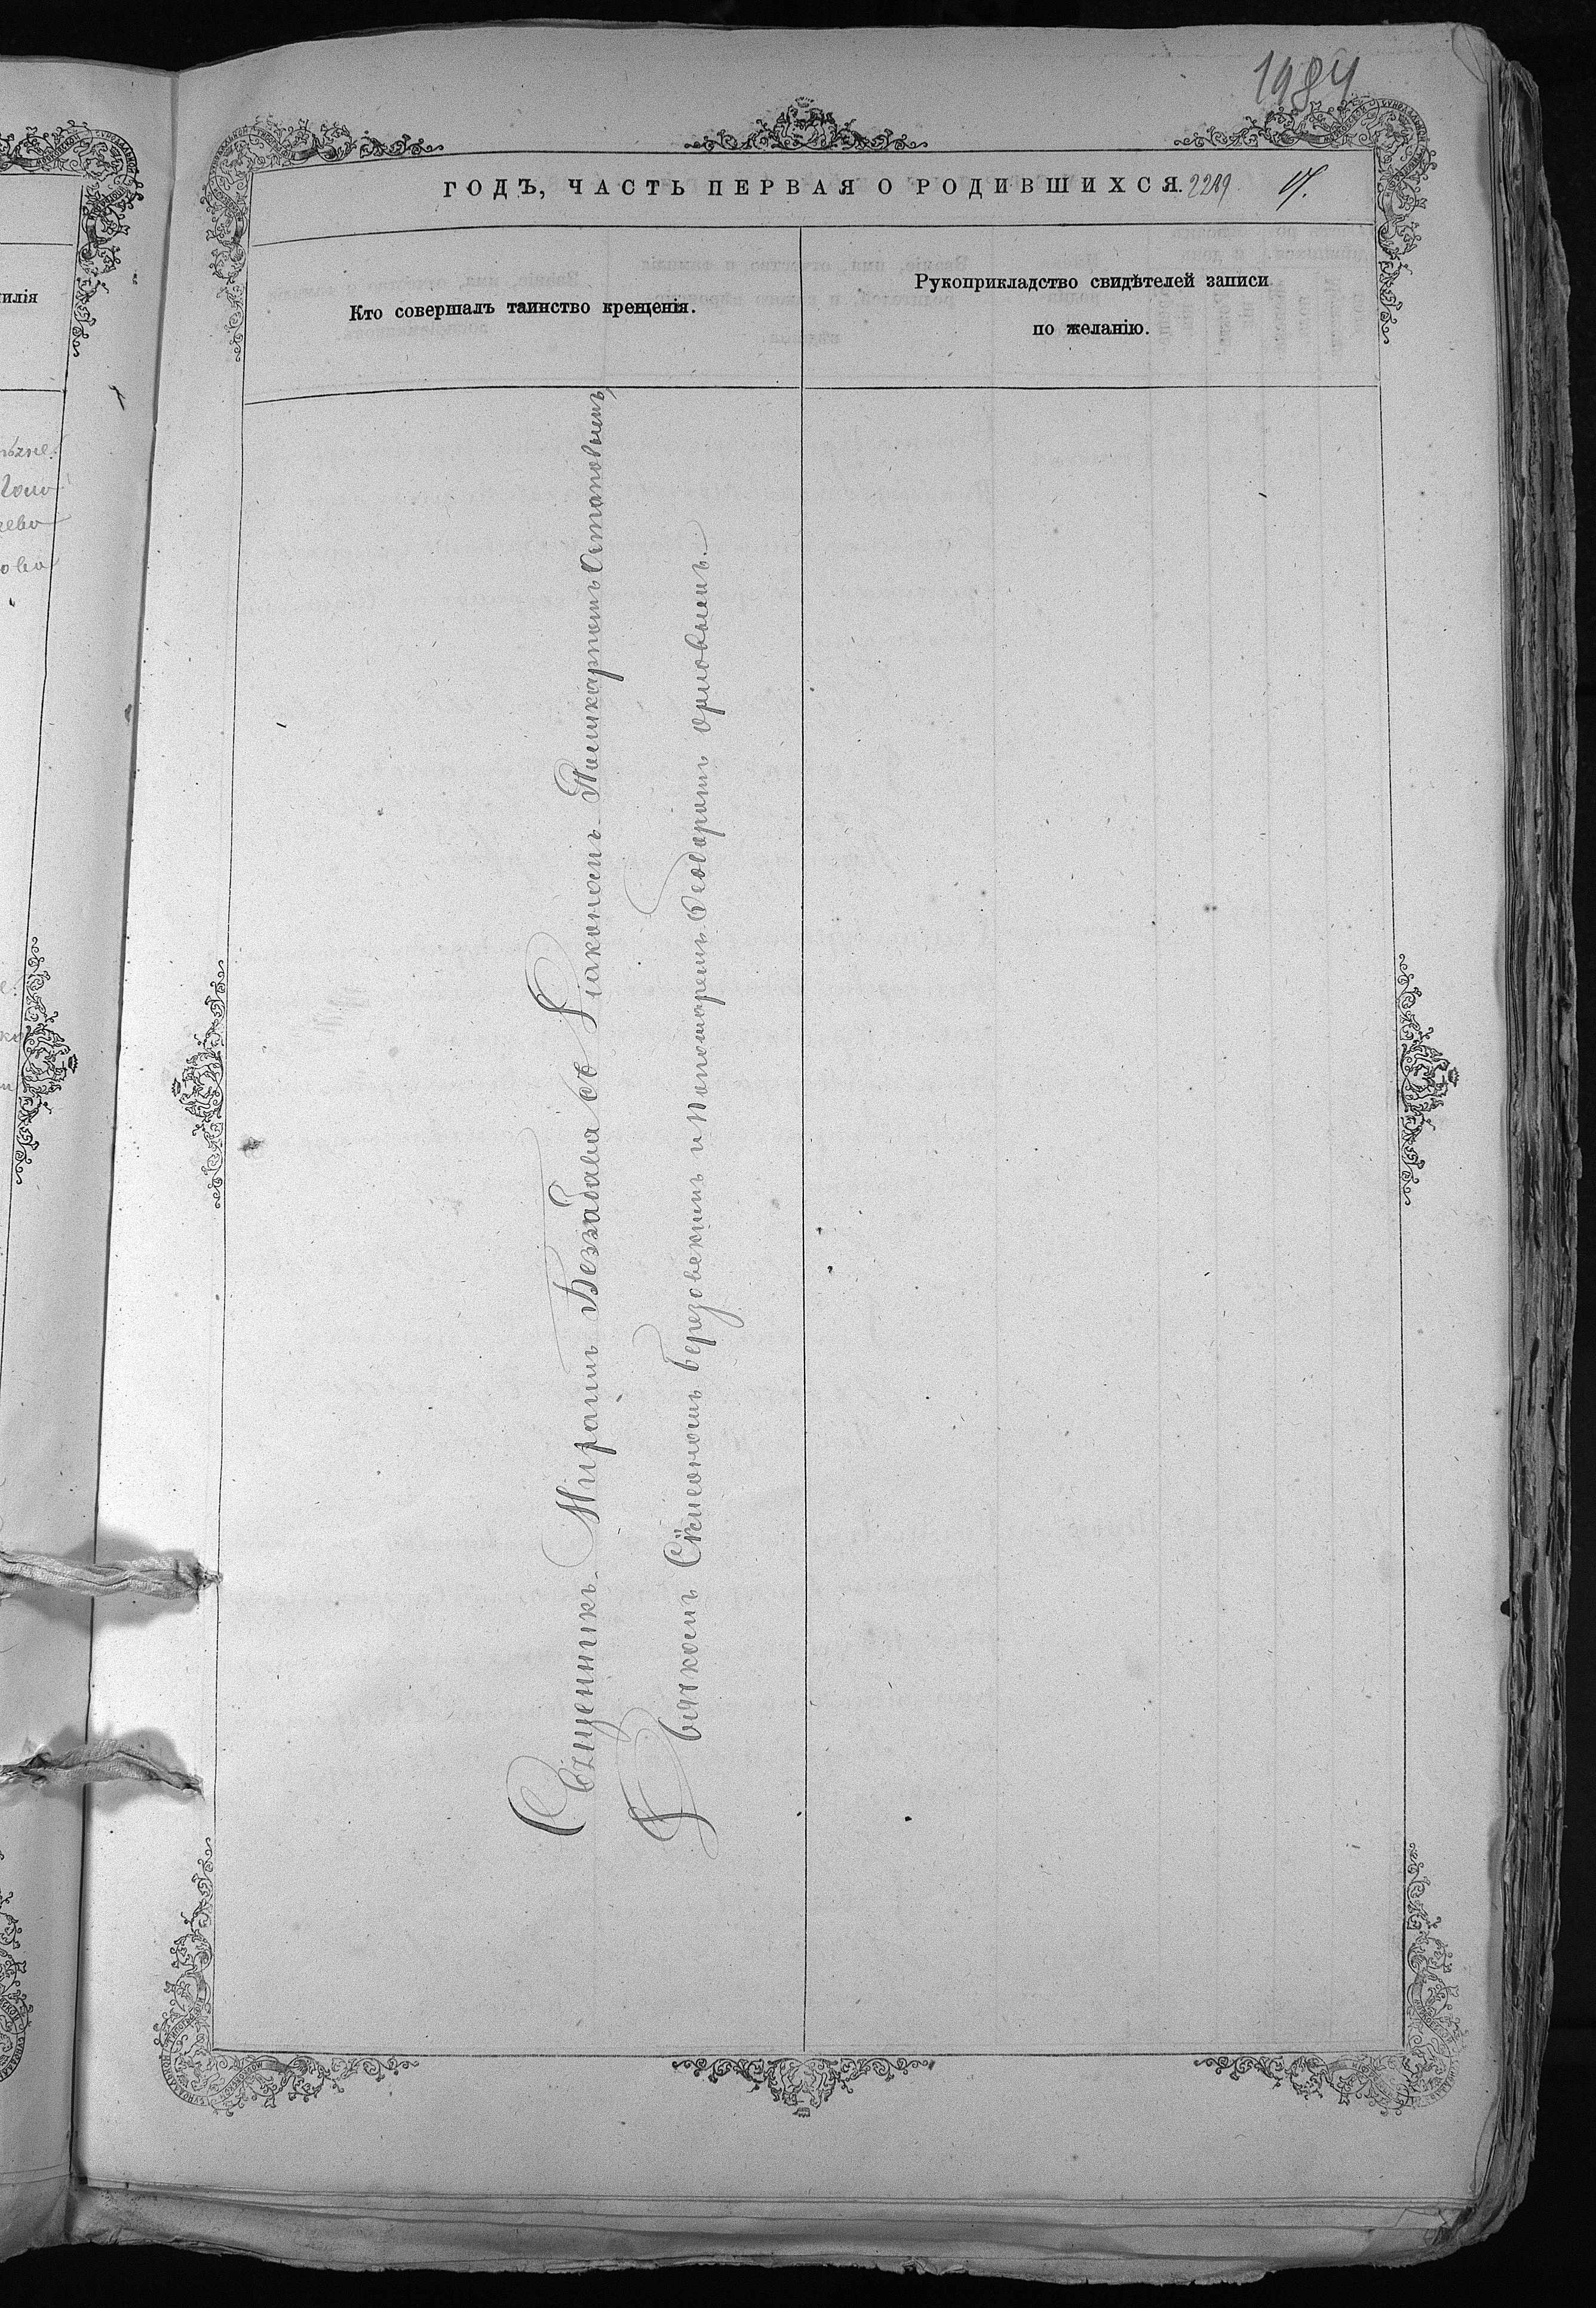 1984
ГОДЪ, ЧАСТЬ ПЕРВАЯ О РОДИВШИХСЯ. 2289
Кто совершалъ таинство крещенія.
Рукоприкладство свидѣтелей записи
по желанію.
Священникъ Миронъ Беззабава съ Діакономъ Поликарпомъ Остаповымъ,
Дьячкомъ Сѵмеономъ Березовскимъ и Пономаремъ Ѳеодоромъ Орловымъ.
илія